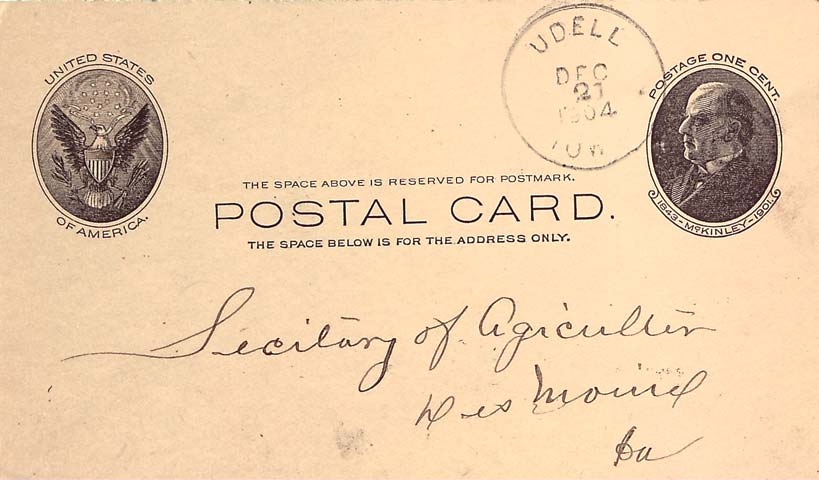 UNITED STATES
OF AMERICA.
UDELL
DEC
21
1904
IOW
POSTAGE ONE CENT.
1843-McKINLEY-1901.
THE SPACE ABOVE IS RESERVED FOR POSTMARK.
POSTAL CARD.
THE SPACE BELOW IS FOR THE ADDRESS ONLY.
Secitary of Agricultir
Des Moine